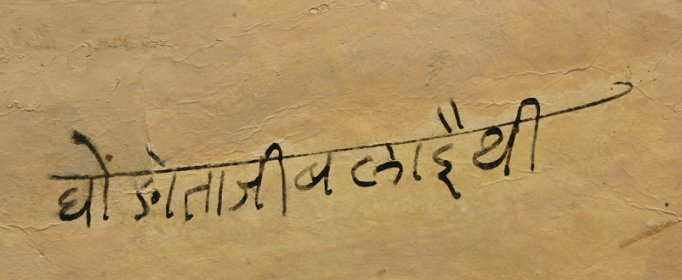 घोंडोताजीबलाईथी